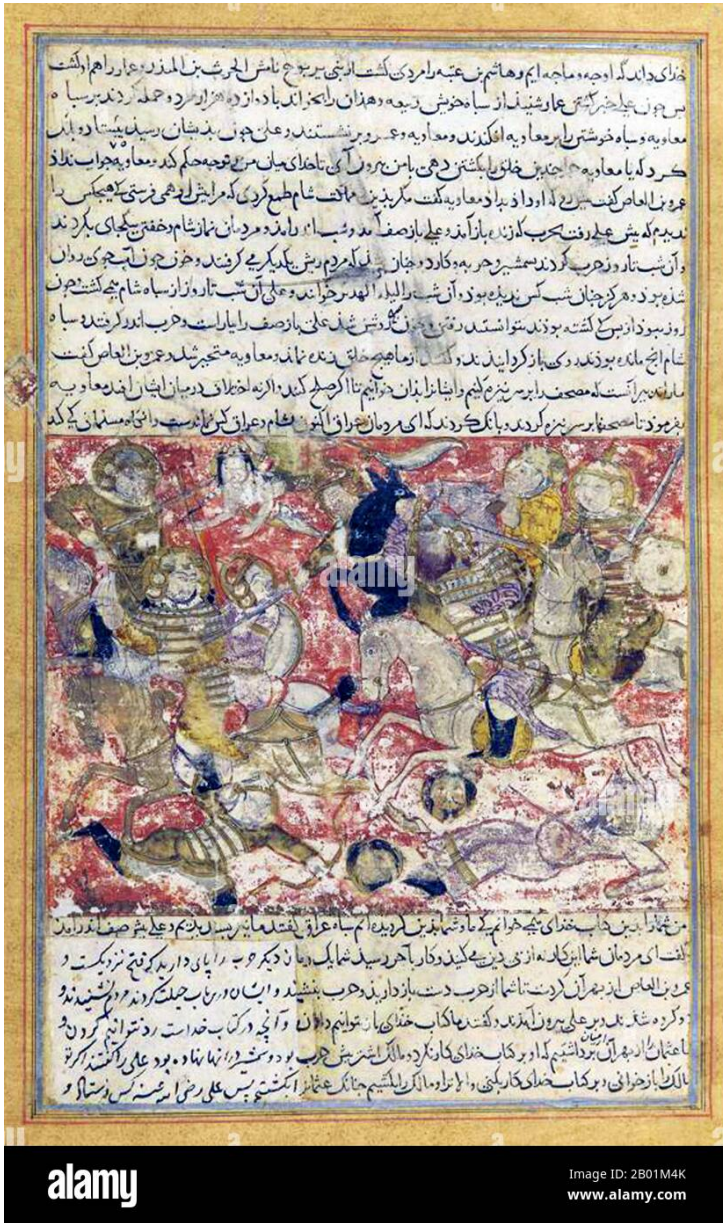 خدای داند که او چه و ما چه ایم و هاشم بن عتبه را مردی کشت از بنی نام الحرث بن المنذر و عمار را هم او کشت
پس چون علی خبر کشتن عمار شنید از سپاه خویش ربیعه و همدان را بخواند با دوازده هزار مرد و حمله کردند بر سپاه
معاویه و سپاه خوشتن را بر معاویه افکندند و معاویه و عمرو بر نشستند و علی چون بذیشان رسید بیستاد و بانک
کرد که یا معاویه چرا چندین خلق را بکشتن دهی با من بیرون آی تا خدای میان من و تو حکم کند و معاویه جواب نداد
عمرو بن العاص گفت که او داد بداد معاویه گفت مگر بدین مملکت شام طمع کردی که مرا پیش او همی فرستی که هیچکس را
ندیدم که پیش علی رفت بحرب که زنده باز آمد و علی باز صف آمد و شب اندر آمد و مردمان نماز شام و خفتن بیکجای بکردند
و آن شب تا روز حرب کردند بشمشیر و حربه و کارد و چنان شد که مردم ریش یکدیگر می گرفتند و خون چون آب جوی روان
شده بود و هرگز چنان شب کس ندیده بود و آن شب را لیلة الهریر خوانند و علی آن شب تا روز از سپاه شام همی کشت و چون
روز ببود از بس که کشته بودند نتوانستند رفتن و چون روشن شد علی باز صف را بیاراست و حرب اندر گرفتند و سپاه
شام آنچ مانده بودند روی باز گردانیدند و گفتند از ما هیچ خلق زنده نماند و معاویه متحیر شد و عمرو بن العاص گفت
ما را تدبیر آنست که مصحف را بر سر نیزه کنیم و ایشانرا بدان خوانیم تا اگر صلح کنند و اگر نه اختلاف در میان ایشان افتد معاویه
بفرمود تا مصحفها بر سر نیزه کردند و بانک کردند که ای مردمان عراق اکنون بشام و عراق کس نماندست و
من شما را بدین کتاب خدای همی خوانم سپاه عراق گفتند ما و علی پیش صف اندر آمد
گفت ای مردمان شما این کار نه از بی دینی می کنید و کار بآخر رسید شما یک زمان دیگر حرب را پای دارید که فتح نزدیکست و
عمرو بن العاص از بهر آن کردست تا شما از حرب دست باز دارید و حرب بنشیند و ایشان درین باب حیلت کردند مردم نشنیدند و
دو گروه شدند و بر علی بیرون آمدند و گفتند ما کتاب خدای باز نتوانیم دادن و آنچه در کتاب خداست رد نتوانیم کردن و
ما عثمان را از بهر آن برداشتیم که او بر کتاب خدای کار نکرد و مالک اشتر پیش حرب بود و علی را گفتند اگر تو
مالک را باز خوانی و بر کتاب خدای کار بکنی و الا ترا و مالک را بکشیم چنانک عثمانرا بکشتیم پس علی رضی الله عنه کس فرستاد و
alamy
alamy
Image ID: 2B01M4K
www.alamy.com